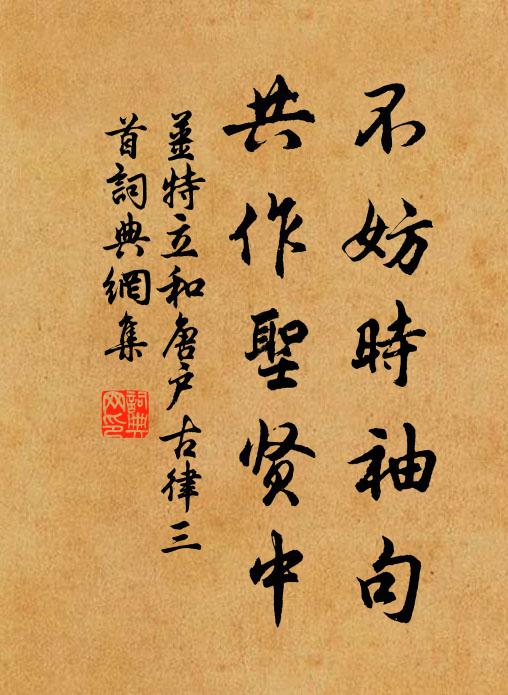 不妨時袖句
共作聖贤中
姜特立和唐户古律三
首詞典網集
詞典网印